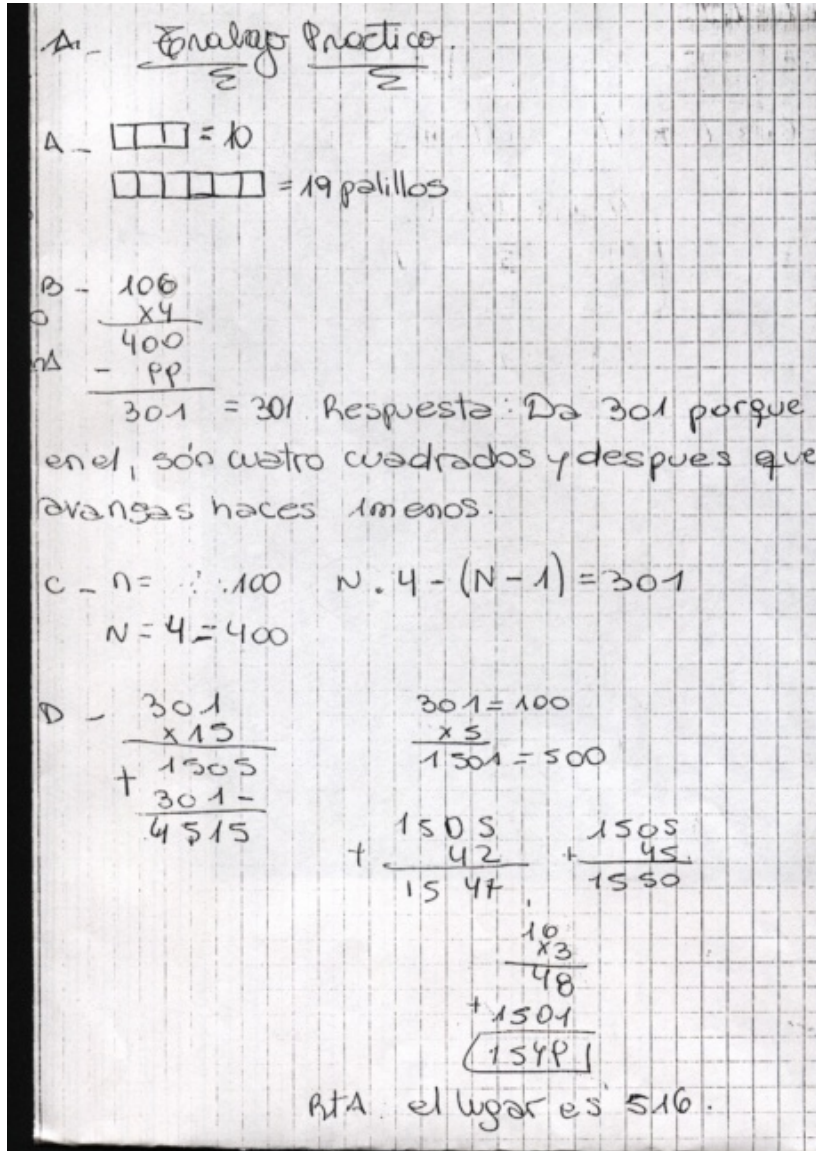 A. Trabajo Practico.
A - = 10
= 19 palillos
B - 100
x4
400
- 99
301 = 301 Respuesta: Da 301 porque
en el, són cuatro cuadrados y despues que
avangas haces 1menos.
C - n= 100 N . 4 - (N - 1) = 301
N = 4 = 400
D - 301 301 = 100
x 15 x 5
+ 1505 1501 = 500
301 -
4515
1505 1505
+ 42 + 45
1547 1550
16
x3
48
+ 1501
1549
RtA el lugar es 516.